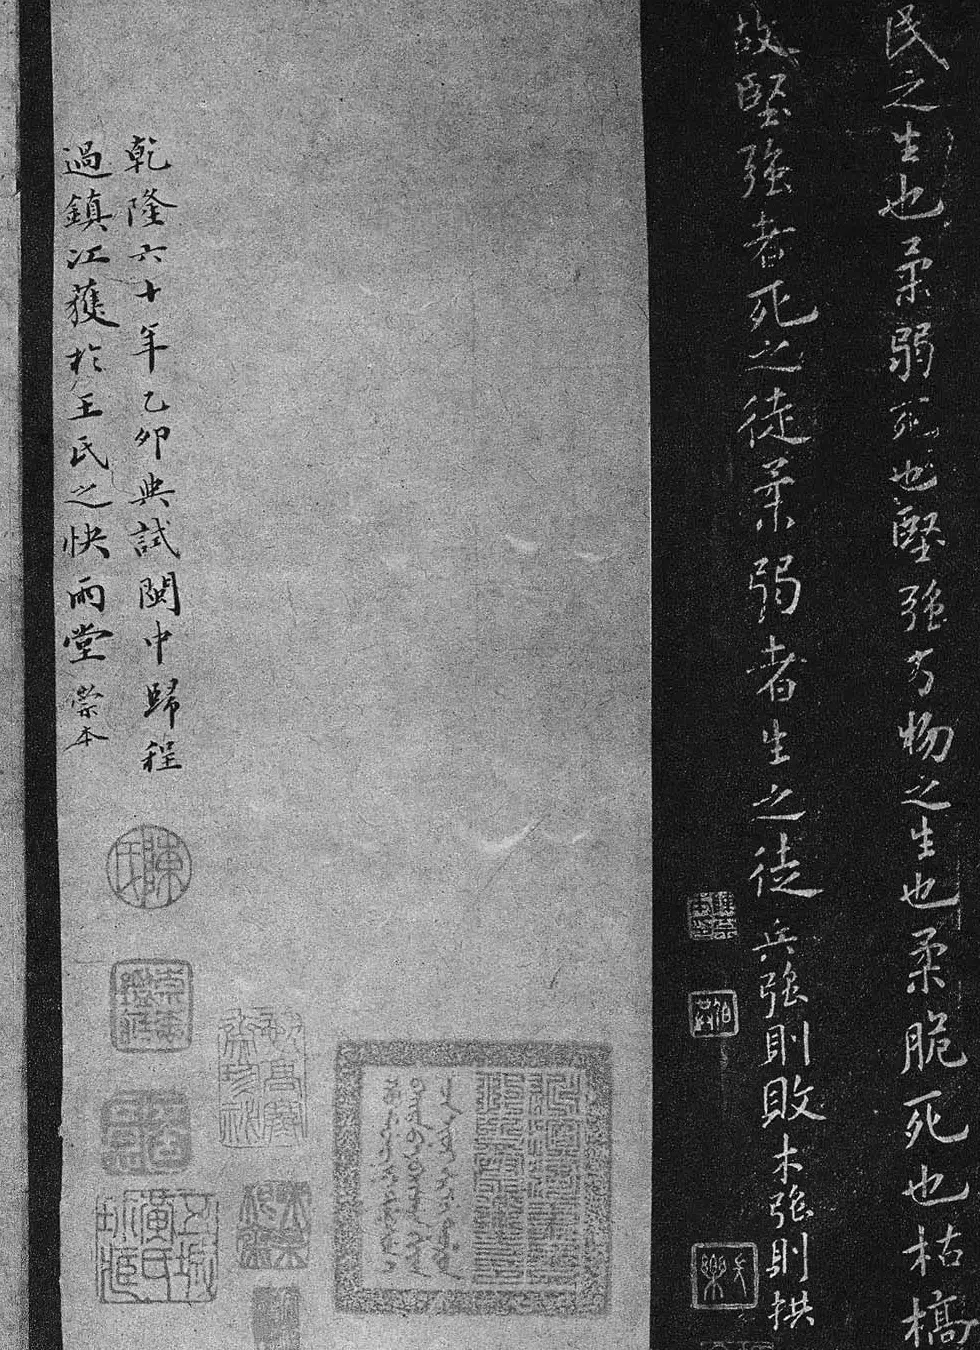 民之生也柔弱死也堅強万物之生也柔脆死也枯槁
故堅強者死之徒柔弱者生之徒兵強則敗木強則拱
乾隆六十年乙卯典試閩中歸程
過鎮江獲於王氏之快雨堂崇本
陳氏